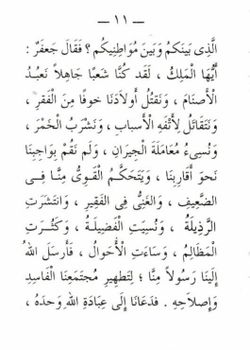 — ١١ —
الَّذِى بَينَكمُ وَبَينَ مُوَاطِنِيكُم ؟ فَقَالَ جَعفَرٌ :
أَيُّهَا المَلِكُ ، لَقَد كُنَّا شَعبًا جَاهِلاً نَعبُدُ
الأَصنَامَ ، وَنَقتُلُ أَولَادَنَا خوفًا مِنَ الفَقرِ ،
وَنَتَقَاتَلُ لِأَتْفَهِ الأسباب ، وَنَشرَبُ الخَمْر ،
وَنُسِىءُ مُعَامَلَةَ الجِيرَانِ ، وَلَم نَقُمْ بِوَاجِبِنَا
نَحوَ أَقَارِبِنَا ، وَيَتَحَكَّمُ القَوِىُّ مِنَّا فِى
الضَّعِيفِ ، وَالغَنِىُّ فِى الفَقِيرِ ، وَانتَشَرَتِ
الرَّذِيلَةُ ، وَنُسِيَتِ الفَضِيلَةُ ، وَكَثُرَتِ
المَظَالِمُ ، وَسَاءَتِ الأَحوَالُ ، فَأَرسَلَ اللهُ
إِلَينَا رَسُولاً مِنَّا ؛ لِتَطهِيرِ مُجتَمَعِنَا الفَاسِدِ
وَإِصلَاحِهِ . فَدَعَانَا إِلَى عِبَادَةِ اللهِ وَحدَهُ ،